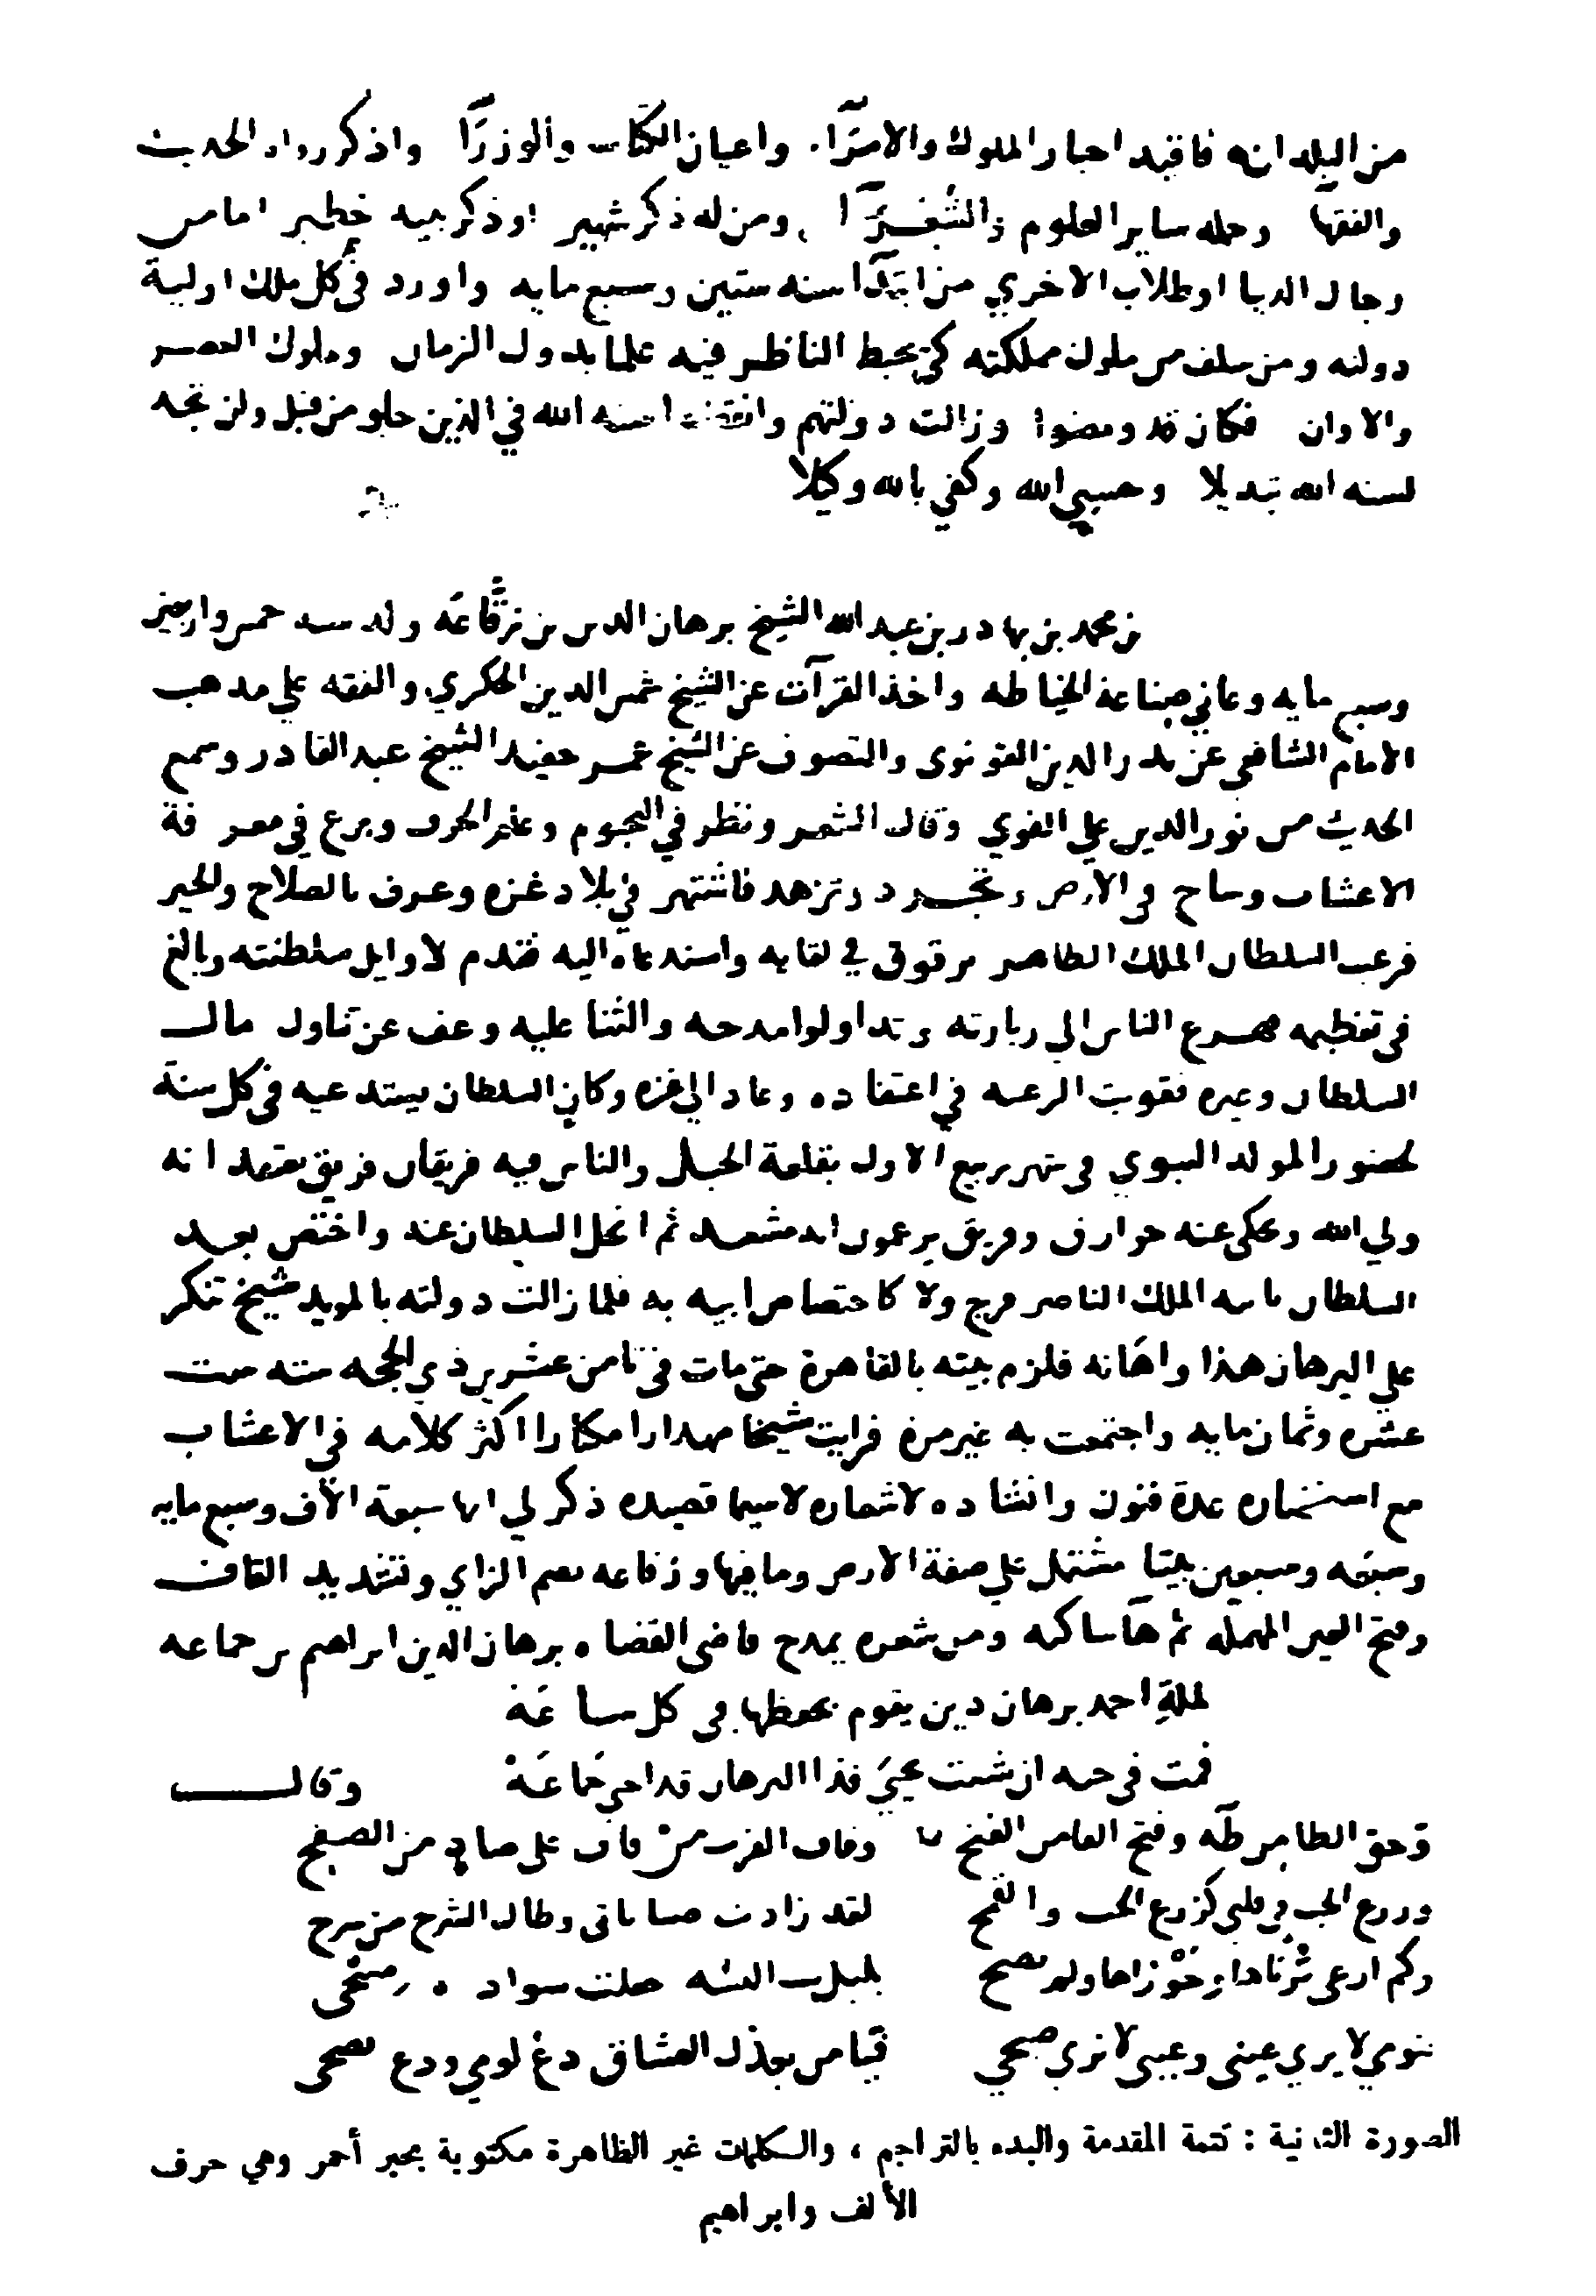 من البلدانه فاقيد احبار الملوك والامرآء واعيان الكتاب والوزرآ واذكر رواه الحديث
والفقها وحمله ساير العلوم والشعرآ ومن له ذكر شهير اوذكر بيه خطير اما من
رجال الدنيا اوطلاب الاخري من ابتدآ سنه ستين وسبع مايه واورد في كل ملك اولية
دولته ومن سلف من ملوك مملكته كي يحيط الناظر فيه علما بدول الزمان وملوك العصر
والاوان فكان قد ومضوا وزالت دولتهم وانقضت سنه الله في الذين خلو من قبل ولن تجد
لسنه الله تبديلا وحسبي الله وكفي بالله وكيلا
بن محمد بن بهادر بن عبد الله الشيخ برهان الدين بن زُقَّاعَه ولد سنه خمس واربعين
وسبع مايه وعاني صناعة الخياطه واخذ القرآت عن الشيخ شمس الدين الحكري والفقه علي مذهب
الامام الشافعي عن بدر الدين القونوي والتصوف عن الشيخ عمر حفيد الشيخ عبد القادر وسمع
الحديث من نور الدين علي الفوي وقال الشعر ونظر في النجوم وعلم الحرف وبرع في معرفة
الاعشاب وساح في الارض وتجرد وتزهد فاشتهر في بلاد غزه وعرف بالصلاح والخير
فرغب السلطان الملك الظاهر برقوق في لقايه واستدعاه اليه فقدم لاوايل سلطنته وبالغ
في تعظيمه فهرع الناس الي زيارته وتداولوا مدحه والثنا عليه وعف عن تناول مال
السلطان وغيره فقويت الرغبه في اعتقاده وعاد الي غزه وكان السلطان يستدعيه في كل سنة
لحضور المولد النبوي في شهر ربيع الاول بقلعة الجبل والناس فيه فريقان فريق يعتقد انه
ولي الله ويحكى عنه خوارق وفريق يزعمون انه مشعبد ثم انحل السلطان عنه واختص بعد
السلطان بابنه الملك الناصر فرج ولا كاختصاص ابيه به فلما زالت دولته بالمويد شيخ تنكر
علي البرهان هذا واهانه فلزم بيته بالقاهرة حتى مات في ثامن عشرين ذي الحجه سنه ست
عشره وثمان مايه واجتمعت به غير مرة فرايت شيخا مهدارا مكثارا اكثر كلامه في الاعشاب
مع استحضاره عدة فنون وانشاده لاشعاره لاسيما قصيده ذكر لي انها سبعة الآف وسبع مايه
وسبعه وسبعين بيتا مشتمل علي صفة الارض وما فيها وزقاعه بضم الزاي وتشديد القاف
وفتح العين المهمله ثم هآ ساكنه ومن شعره يمدح قاضي القضاه برهان الدين ابراهيم بن جماعه
لملةِ احمد برهان دين يقوم بحفظها في كل ساعَة
فمت في حبه ان شئت تحيَى فذا البرهان قد احيى جَماعَهْ وقال
وحق الطا من طه وفتح الفا من الفتح وقاف القرب من قاف على صاد من الصفح
وزرع الحب في قلبي كزرع الحب والقمح لقد زادت صباباتي وطال الشرح من شرح
وكم ارعى ثُرَيَّاها وجَوْزاها ولم تصح حلت سواد
نومي لا يرى عيني وعيني لا تري صبحي فيا من بعذل العشاق دعْ لومي ودع نصحي
الصورة الثانية : تتمة المقدمة والبدء بالتراجم ، والكلمات غير الظاهرة مكتوبة بحبر أحمر وهي حرف
الألف وابراهيم